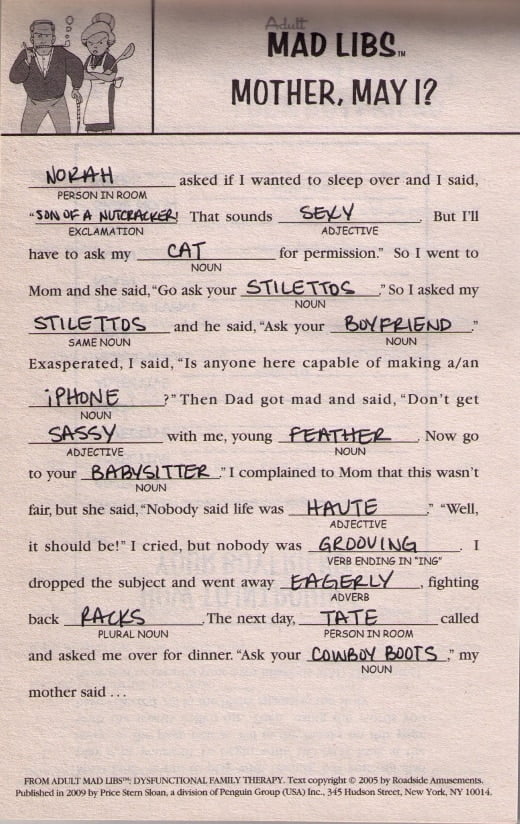 Adult
MAD LIBS™
MOTHER, MAY I?
NORAH asked if I wanted to sleep over and I said,
PERSON IN ROOM
"SON OF A NUTCRACKER! That sounds SEXY. But I'll
EXCLAMATION ADJECTIVE
have to ask my CAT for permission." So I went to
NOUN
Mom and she said, "Go ask your STILETTOS." So I asked my
NOUN
STILETTOS and he said, "Ask your BOYFRIEND."
SAME NOUN NOUN
Exasperated, I said, "Is anyone here capable of making a/an
iPHONE?" Then Dad got mad and said, "Don't get
NOUN
SASSY with me, young FEATHER. Now go
ADJECTIVE NOUN
to your BABYSITTER." I complained to Mom that this wasn't
NOUN
fair, but she said, "Nobody said life was HAUTE." "Well,
ADJECTIVE
it should be!" I cried, but nobody was GROOVING. I
VERB ENDING IN "ING"
dropped the subject and went away EAGERLY, fighting
ADVERB
back RACKS. The next day, TATE called
PLURAL NOUN PERSON IN ROOM
and asked me over for dinner. "Ask your COWBOY BOOTS," my
NOUN
mother said ...
FROM ADULT MAD LIBS™: DYSFUNCTIONAL FAMILY THERAPY. Text copyright © 2005 by Roadside Amusements.
Published in 2009 by Price Stern Sloan, a division of Penguin Group (USA) Inc., 345 Hudson Street, New York, NY 10014.